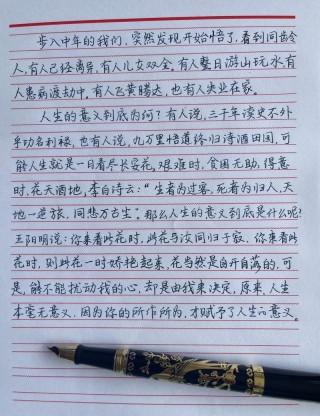 步入中年的我们，突然发现开始悟了，看到同龄
人，有人已经离异，有人儿女双全。有人整日游山玩水，有
人患病渡劫中，有人飞黄腾达，也有人失业在家。
人生的意义到底为何？有人说，三千年读史不外
乎功名利禄，也有人说，九万里悟道终归诗酒田园，可
能人生就是一日看尽长安花，艰难时，贫困无助，得意
时，花天酒地，李白诗云：“生者为过客，死者为归人，天
地一逆旅，同悲万古尘。”那么人生的意义到底是什么呢？
王阳明说：你未看此花时，此花与汝同归于寂，你来看此
花时，则此花一时娇艳起来，花当然是自开自落的，可
是，能不能扰动我的心，却是由我来决定，原来，人生
本毫无意义，因为你的所作所为，才赋予了人生的意义。